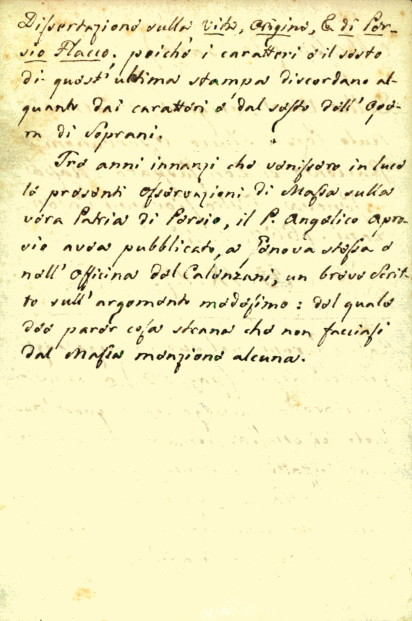 Dissertazione sulla vita, origine, & di Per-
sio Flacco, poiché i caratteri e il sesto
di quest'ultima stampa discordano al-
quanto dai caratteri e dal sesto dell'Ope-
ra di Soprani.
Tre anni innanzi che venissero in luce
le presenti Osservazioni di Massa sulla
vera Patria di Persio, il P. Angelico Apro-
sio avea pubblicato, a Genova stessa e
nell'Officina del Calenzani, un breve Scrit-
to sull'argomento medesimo: del quale
dee parer cosa strana che non facciasi
dal Massa menzione alcuna.